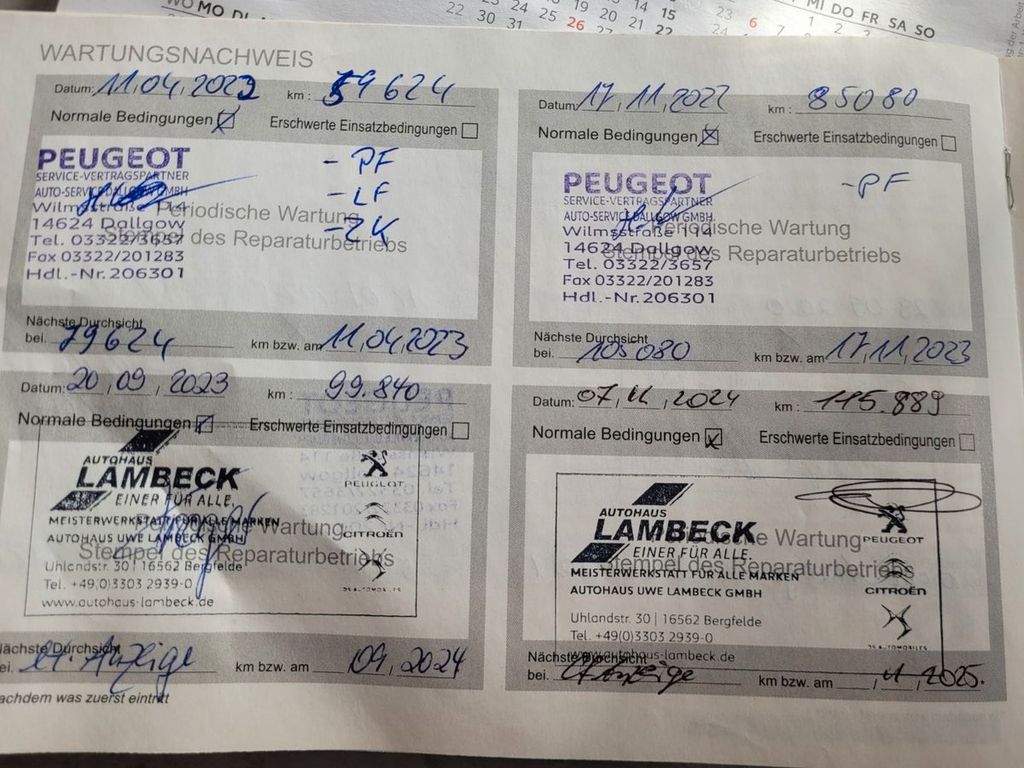 MO DI
MI DO FR SA SO
22 23 24 25 26
30 31
WARTUNGSNACHWEIS
Datum: 11.04.2022 km: 59624
Normale Bedingungen ☒ Erschwerte Einsatzbedingungen ☐
PEUGEOT
SERVICE-VERTRAGSPARTNER
AUTO-SERVICE DALLGOW GMBH
Wilmsstraße 114
14624 Dallgow
Tel. 03322/3657
Fax 03322/201283
Hdl.-Nr.206301
- PF
- LF
- ZK
Periodische Wartung
Stempel des Reparaturbetriebs
Nächste Durchsicht
bei. 79624 km bzw. am 11.04.2023
Datum: 17.11.2022 km: 85080
Normale Bedingungen ☒ Erschwerte Einsatzbedingungen ☐
PEUGEOT
SERVICE-VERTRAGSPARTNER
AUTO-SERVICE DALLGOW GMBH
Wilmsstraße 114
14624 Dallgow
Tel. 03322/3657
Fax 03322/201283
Hdl.-Nr.206301
- PF
Periodische Wartung
Stempel des Reparaturbetriebs
Nächste Durchsicht
bei. 105080 km bzw. am 17.11.2023
Datum: 20.09.2023 km: 99.840
Normale Bedingungen ☒ Erschwerte Einsatzbedingungen ☐
AUTOHAUS
LAMBECK
EINER FÜR ALLE.
MEISTERWERKSTATT FÜR ALLE MARKEN
AUTOHAUS UWE LAMBECK GMBH
Uhlandstr. 30 | 16562 Bergfelde
Tel. +49(0)3303 2939-0
www.autohaus-lambeck.de
PEUGEOT
CITROËN
DS AUTOMOBILES
Periodische Wartung
Stempel des Reparaturbetriebs
Nächste Durchsicht
bei. lt. Anzeige km bzw. am 09.2024
nachdem was zuerst eintritt
Datum: 07.11.2024 km: 115.889
Normale Bedingungen ☒ Erschwerte Einsatzbedingungen ☐
AUTOHAUS
LAMBECK
EINER FÜR ALLE.
MEISTERWERKSTATT FÜR ALLE MARKEN
AUTOHAUS UWE LAMBECK GMBH
Uhlandstr. 30 | 16562 Bergfelde
Tel. +49(0)3303 2939-0
www.autohaus-lambeck.de
PEUGEOT
CITROËN
DS AUTOMOBILES
Periodische Wartung
Stempel des Reparaturbetriebs
Nächste Durchsicht
bei. lt Anzeige km bzw. am 11.2025.